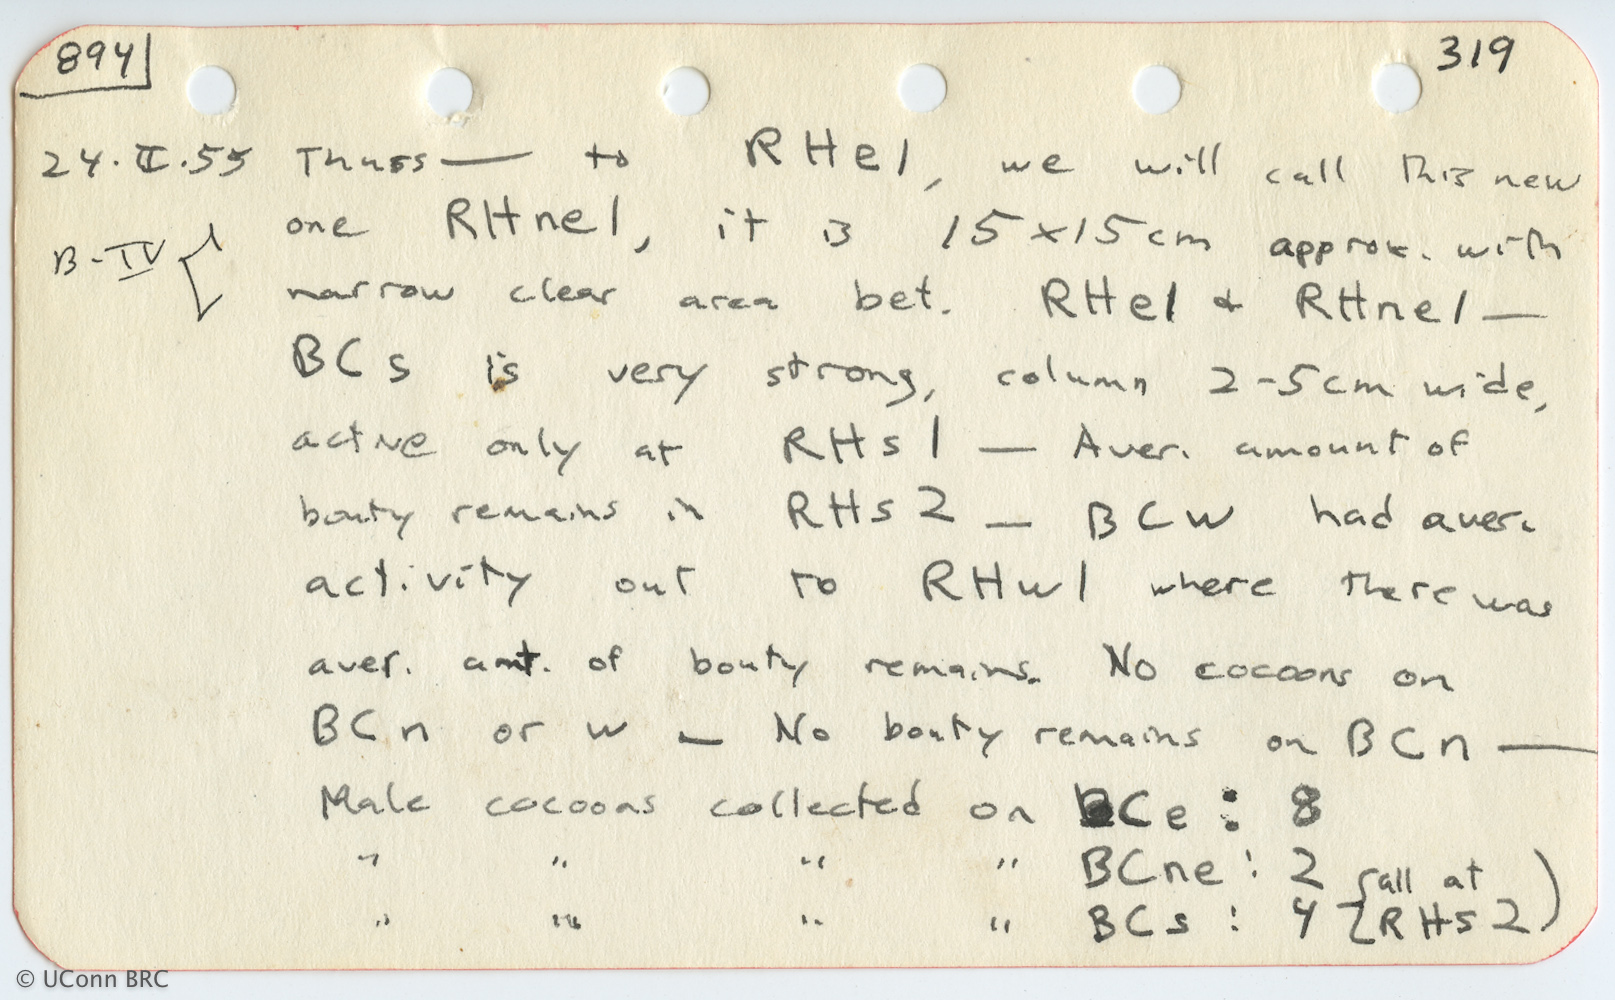 894
319
24.II.55 Thurs — to RHe1, we will call this new
B-IV { one RHne1, it is 15x15cm approx. with
narrow clear area bet. RHe1 + RHne1 —
BCs is very strong, column 2-5cm wide,
active only at RHs1 — Aver. amount of
booty remains in RHs2 — BCw had aver.
activity out to RHw1 where there was
aver. amt. of booty remains. No cocoons on
BCn or w — No booty remains on BCn —
Male cocoons collected on BCe : 8
" " " " BCne : 2 (all at
" " " " BCs : 4 { RHs2)
© UConn BRC